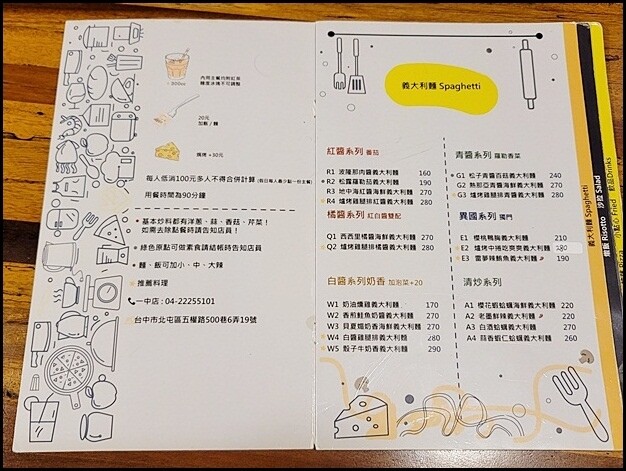 300cc
內用主餐均附紅茶
甜度冰塊不可調整
20元
加飯 / 麵
焗烤 +30元
每人低消100元多人不得合併計算
用餐時間為90分鐘
基本炒料都有洋蔥、蒜、香菇、芹菜！
如需去除配餐時請告知店員！
綠色原點可做素食請結帳時告知店員
麵、飯可加小、中、大辣
推薦料理
一中店 : 04-22255101
台中市北屯區五權路500巷6弄19號
義大利麵 Spaghetti
紅醬系列 番茄
R1 波隆那肉醬義大利麵 160
R2 松露羅勒菇義大利麵 190
R3 地中海紅醬海鮮義大利麵 270
R4 爐烤雞腿排紅醬義大利麵 280
橘醬系列 紅白醬雙配
Q1 西西里橘醬海鮮義大利麵 270
Q2 爐烤雞腿排橘醬義大利麵 280
白醬系列奶香 加泡菜+20
W1 奶油燻雞義大利麵 170
W2 香煎鮭魚奶醬義大利麵 270
W3 貝夏媚奶香海鮮義大利麵 270
W4 白醬雞腿排義大利麵 280
W5 骰子牛奶香義大利麵 290
青醬系列 羅勒香菜
G1 松子青醬百菇義大利麵 240
G2 熱那亞青醬海鮮義大利麵 270
G3 爐烤雞腿排青醬義大利麵 280
異國系列 獨門
E1 櫻桃鴨胸義大利麵 210
E2 爐烤中捲吃爽爽義大利麵 280
E3 雷夢辣鮪魚義大利麵 190
清炒系列
A1 櫻花蝦蛤蠣海鮮義大利麵 220
A2 老墨鮮辣義大利麵 220
A3 白酒蛤蠣義大利麵 220
A4 蒜香蝦仁蛤蠣義大利麵 260
義大利麵 Spaghetti
燉飯 Risotto
沙拉 Salad
小點心 Fried
飲品Drinks